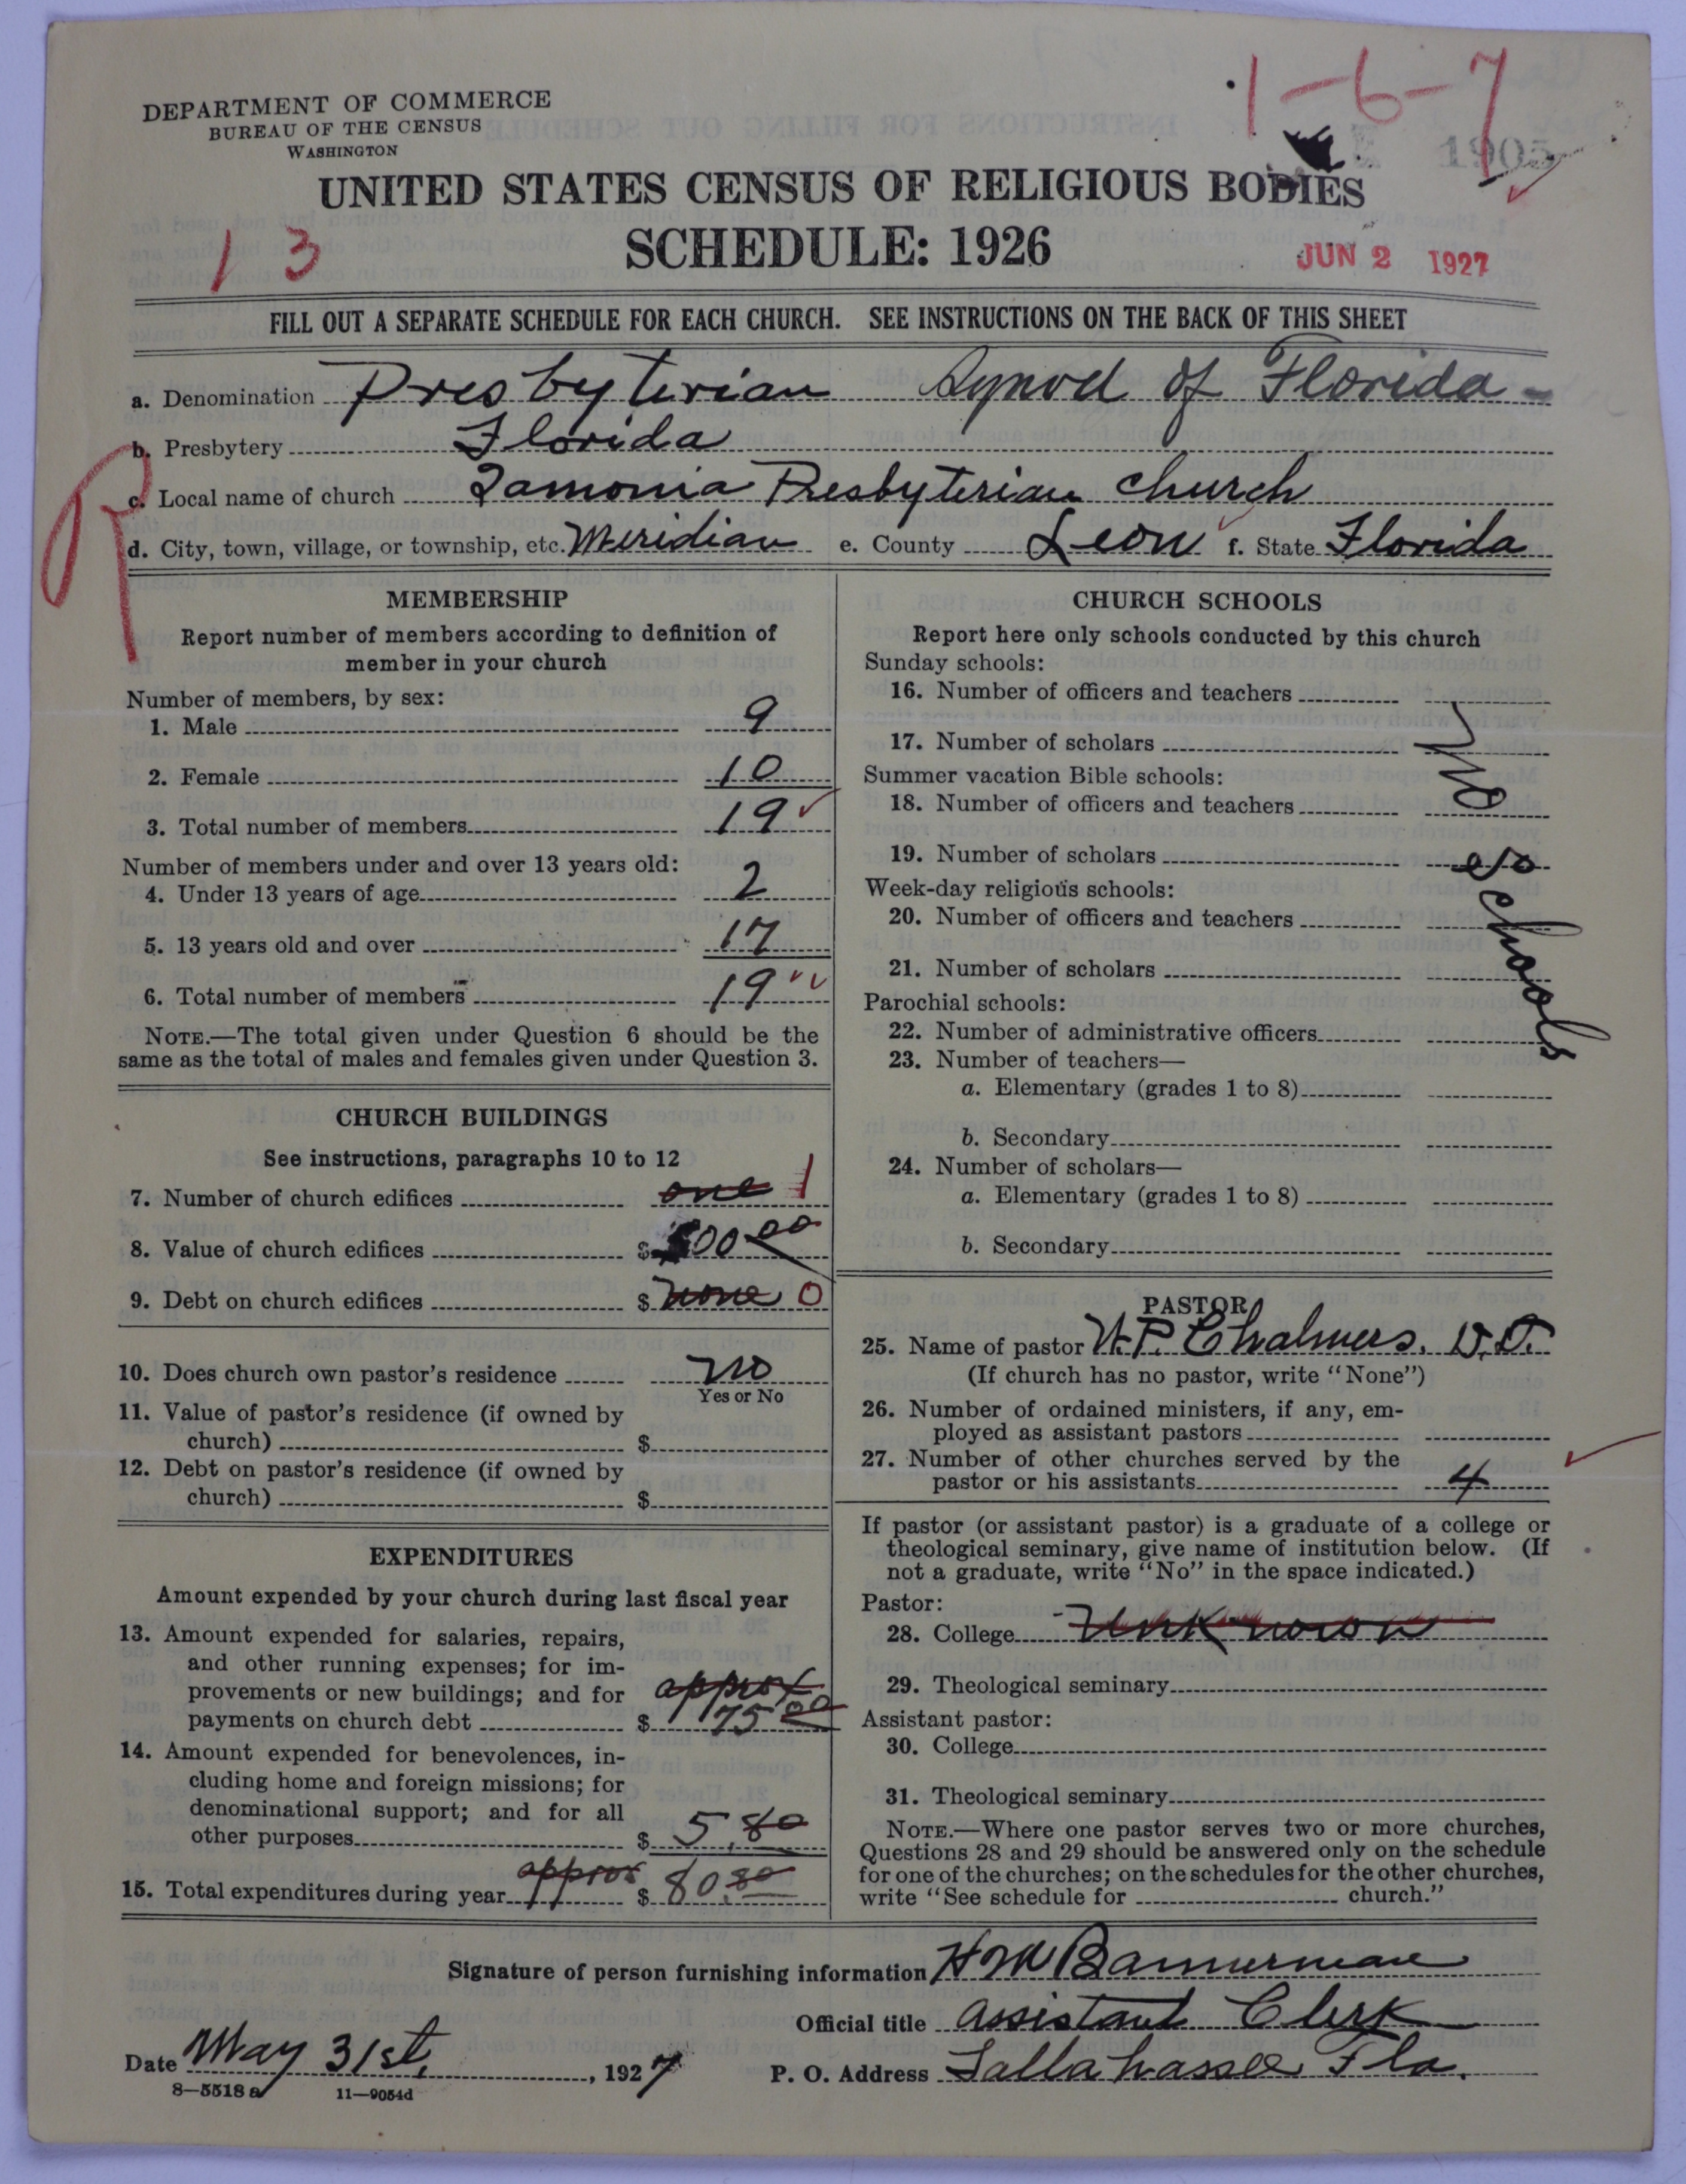 1-6-7
DEPARTMENT OF COMMERCE
BUREAU OF THE CENSUS
WASHINGTON
1905
UNITED STATES CENSUS OF RELIGIOUS BODIES
SCHEDULE: 1926
1 3
JUN 2 1927
FILL OUT A SEPARATE SCHEDULE FOR EACH CHURCH. SEE INSTRUCTIONS ON THE BACK OF THIS SHEET
a. Denomination Presbyterian Synod of Florida -
b. Presbytery Florida
c. Local name of church Iamonia Presbyterian church
d. City, town, village, or township, etc. Meridian e. County Leon f. State Florida
MEMBERSHIP
Report number of members according to definition of
member in your church
Number of members, by sex:
1. Male 9
2. Female 10
3. Total number of members 19
Number of members under and over 13 years old:
4. Under 13 years of age 2
5. 13 years old and over 17
6. Total number of members 19
NOTE.—The total given under Question 6 should be the
same as the total of males and females given under Question 3.
CHURCH BUILDINGS
See instructions, paragraphs 10 to 12
7. Number of church edifices one 1
8. Value of church edifices $
9. Debt on church edifices $ none 0
10. Does church own pastor's residence no
Yes or No
11. Value of pastor's residence (if owned by
church) $
12. Debt on pastor's residence (if owned by
church) $
EXPENDITURES
Amount expended by your church during last fiscal year
13. Amount expended for salaries, repairs,
and other running expenses; for im-
provements or new buildings; and for approx
payments on church debt $ 75 00
14. Amount expended for benevolences, in-
cluding home and foreign missions; for
denominational support; and for all
other purposes $ 5.80
15. Total expenditures during year approx $ 80.80
CHURCH SCHOOLS
Report here only schools conducted by this church
Sunday schools:
16. Number of officers and teachers
17. Number of scholars
Summer vacation Bible schools:
18. Number of officers and teachers
19. Number of scholars
Week-day religious schools:
20. Number of officers and teachers
21. Number of scholars
Parochial schools:
22. Number of administrative officers
23. Number of teachers—
a. Elementary (grades 1 to 8)
b. Secondary
24. Number of scholars—
a. Elementary (grades 1 to 8)
b. Secondary
No schools
PASTOR
25. Name of pastor W.P. Chalmers, D.D.
(If church has no pastor, write "None")
26. Number of ordained ministers, if any, em-
ployed as assistant pastors
27. Number of other churches served by the
pastor or his assistants 4
If pastor (or assistant pastor) is a graduate of a college or
theological seminary, give name of institution below. (If
not a graduate, write "No" in the space indicated.)
Pastor:
28. College Unknown
29. Theological seminary
Assistant pastor:
30. College
31. Theological seminary
NOTE.—Where one pastor serves two or more churches,
Questions 28 and 29 should be answered only on the schedule
for one of the churches; on the schedules for the other churches,
write "See schedule for church."
Signature of person furnishing information H M Bannerman
Official title Assistant Clerk
Date May 31st, 1927 P. O. Address Tallahassee Fla.
8—5518 a 11—9054d